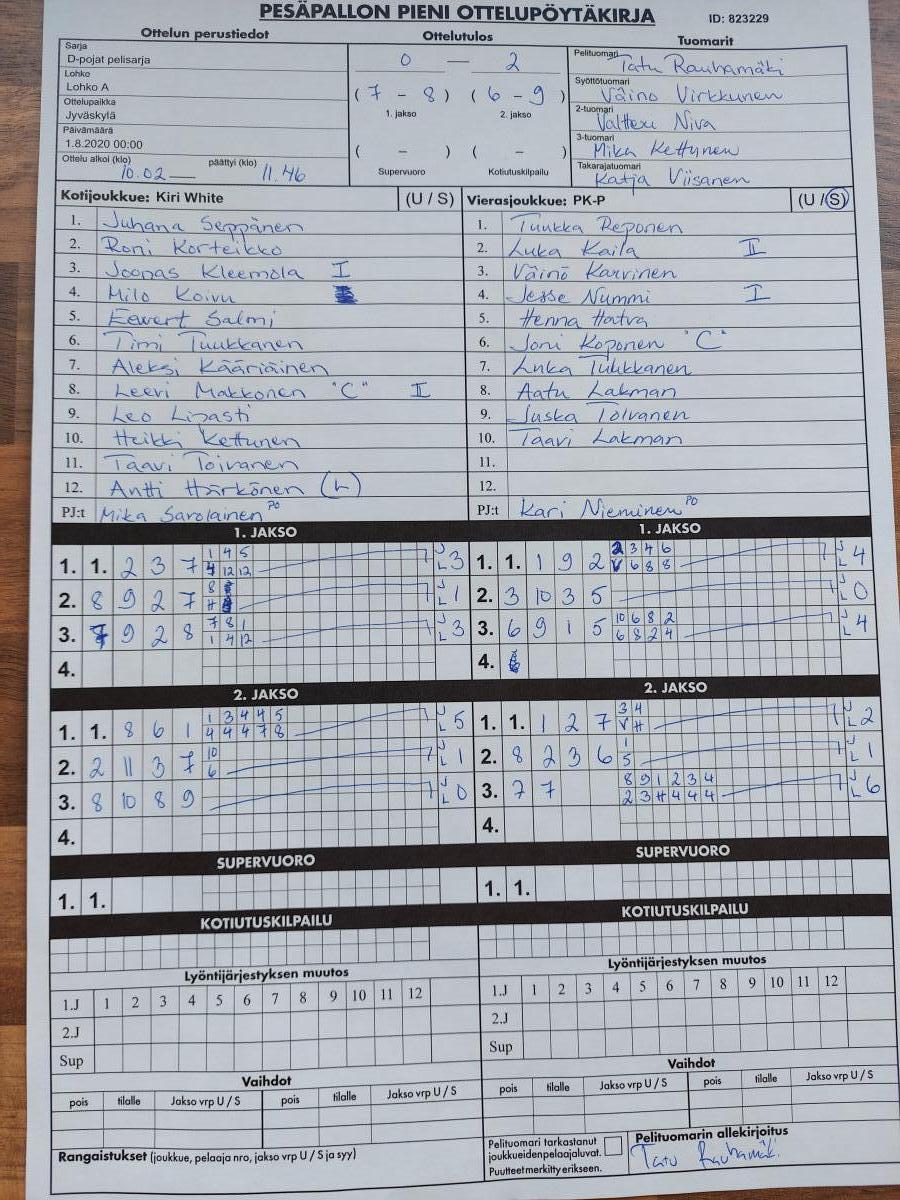 PESÄPALLON PIENI OTTELUPÖYTÄKIRJA
ID: 823229
Ottelun perustiedot
Ottelutulos
Tuomarit
Sarja
D-pojat pelisarja
Lohko
Lohko A
Ottelupaikka
Jyväskylä
Päivämäärä
1.8.2020 00:00
Ottelu alkoi (klo) 10.02 päättyi (klo) 11.46
0 — 2
( 7 - 8 ) ( 6 - 9 )
1. jakso 2. jakso
( - ) ( - )
Supervuoro Kotiutuskilpailu
Pelituomari Tatu Rauhamäki
Syöttötuomari Väinö Virkkunen
2-tuomari Valtteri Niva
3-tuomari Mika Kettunen
Takarajatuomari Katja Viisanen
Kotijoukkue: Kiri White (U / S)
1. Juhana Seppänen
2. Roni Korteikko
3. Joonas Kleemola I
4. Milo Koivu
5. Eewert Salmi
6. Timi Tuukkanen
7. Aleksi Kääriäinen
8. Leevi Makkonen "C" I
9. Leo Lipasti
10. Heikki Kettunen
11. Taavi Toivanen
12. Antti Härkönen (L)
PJ:t Mika Savolainen PO
Vierasjoukkue: PK-P (U / S)
1. Tuukka Reponen
2. Luka Kaila II
3. Väinö Karvinen
4. Jesse Nummi I
5. Henna Hatva
6. Joni Koponen "C"
7. Luka Tulkkanen
8. Aatu Lakman
9. Juska Tolvanen
10. Taavi Lakman
11.
12.
PJ:t Kari Nieminen PO
1. JAKSO
1. 1. 2 3 7 1 4 5 J L 3
4 12 12
2. 8 9 2 7 8 J L 1
H
3. 7 9 2 8 7 8 1 J L 3
1 4 12
4.
1. JAKSO
1. 1. 1 9 2 2 3 4 6 J L 4
V 6 8 8
2. 3 10 3 5 J L 0
3. 6 9 1 5 10 6 8 2 J L 4
6 8 2 4
4.
2. JAKSO
1. 1. 8 6 1 1 3 4 4 5 J L 5
4 4 4 7 8
2. 2 11 3 7 10 J L 1
6
3. 8 10 8 9 J L 0
4.
2. JAKSO
1. 1. 1 2 7 3 4 J L 2
V H
2. 8 2 3 6 1 J L 1
5
3. 7 7 8 9 1 2 3 4 J L 6
2 3 H 4 4 4
4.
SUPERVUORO
1. 1.
SUPERVUORO
1. 1.
KOTIUTUSKILPAILU
KOTIUTUSKILPAILU
Lyöntijärjestyksen muutos
1.J 1 2 3 4 5 6 7 8 9 10 11 12
2.J
Sup
Lyöntijärjestyksen muutos
1.J 1 2 3 4 5 6 7 8 9 10 11 12
2.J
Sup
Vaihdot
pois tilalle Jakso vrp U / S pois tilalle Jakso vrp U / S
Vaihdot
pois tilalle Jakso vrp U / S pois tilalle Jakso vrp U / S
Rangaistukset (joukkue, pelaaja nro, jakso vrp U / S ja syy)
Pelituomari tarkastanut
joukkueiden pelaajaluvat.
Puutteet merkitty erikseen.
Pelituomarin allekirjoitus
Tatu Rauhamäki